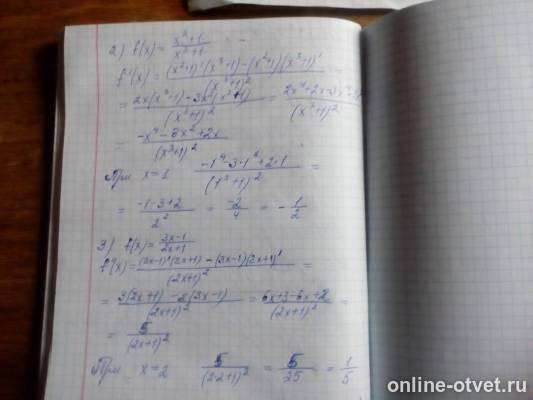 2) f(x) = (x²+1)/(x³+1)
f'(x) = ((x²+1)'(x³+1) - (x²+1)(x³+1)')/(x³+1)² =
= (2x(x³+1) - 3x²(x²+1))/(x³+1)² = (2x⁴+2x-3x⁴-3x²)/(x³+1)²
= (-x⁴-3x²+2x)/(x³+1)²
При x=1 (-1⁴-3·1²+2·1)/(1³+1)² =
= (-1-3+2)/2² = -2/4 = -1/2
3) f(x) = (3x-1)/(2x+1)
f'(x) = ((3x-1)'(2x+1) - (3x-1)(2x+1)')/(2x+1)² =
= (3(2x+1) - 2(3x-1))/(2x+1)² = (6x+3-6x+2)/(2x+1)² =
= 5/(2x+1)²
При x=2 5/(2·2+1)² = 5/25 = 1/5
online-otvet.ru